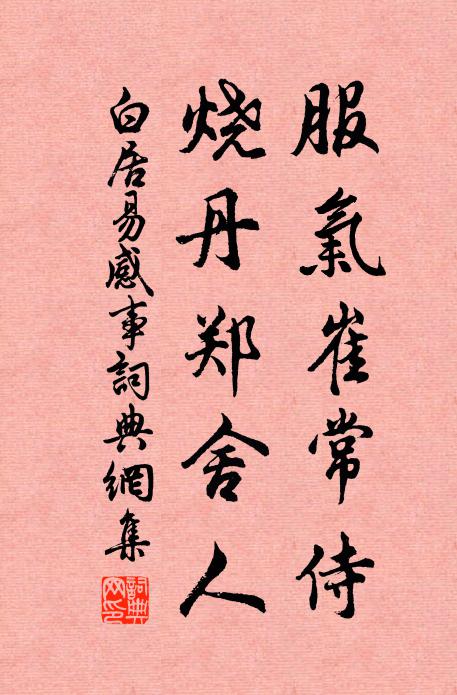 服氣崔常侍
烧丹郑舍人
白居易感事詞典網集
詞典网印